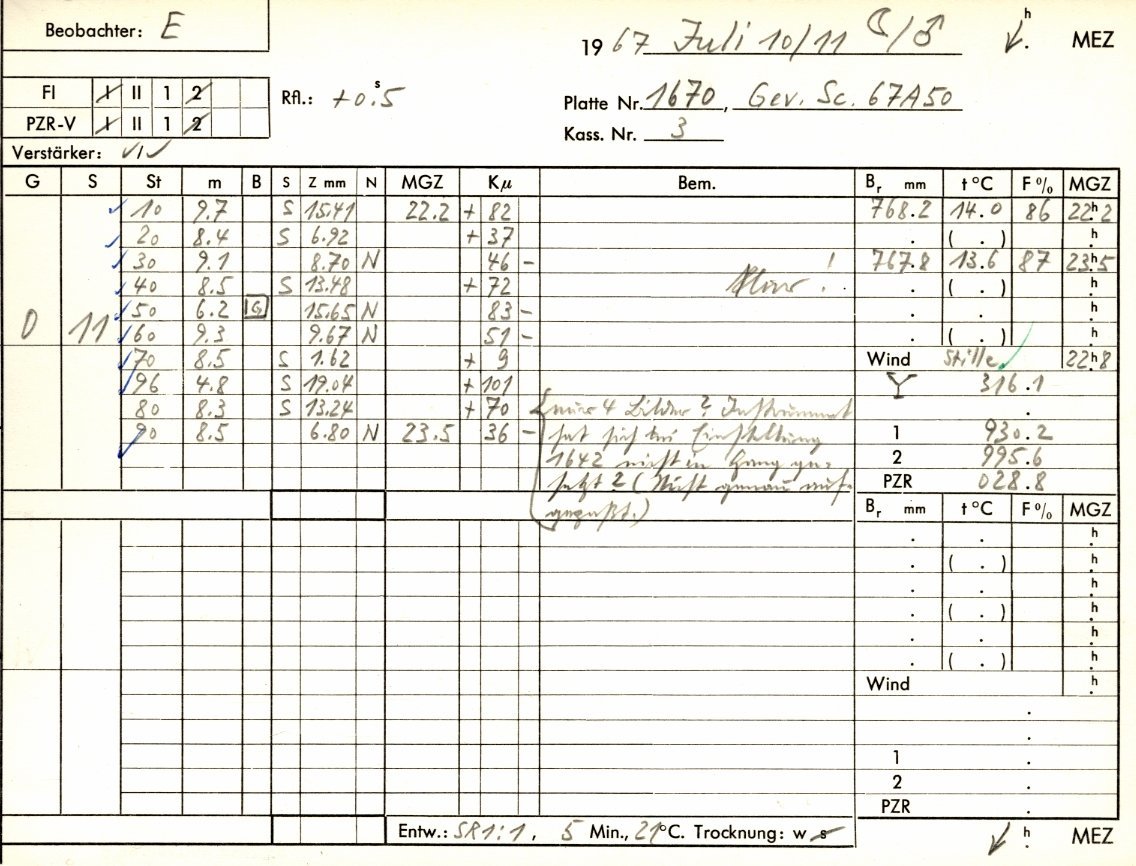 Beobachter: E
19 67 Juli 10/11 ☾/♂ h . MEZ
Fl I II 1 2
PZR-V I II 1 2
Rfl.: +0.s5
Platte Nr. 1670, Gev. Sc. 67A50
Kass. Nr. 3
Verstärker: √1√
G S St m B S Z mm N MGZ Kμ Bem. Br mm t °C F % MGZ
10 9.7 S 15.41 22.2 + 82 768.2 14.0 86 22h.2
20 8.4 S 6.92 + 37 . ( . ) h.
30 9.1 8.70 N 46 - 767.8 13.6 87 23h.5
40 8.5 S 13.48 + 72 klar ! . ( . ) h.
50 6.2 G 15.65 N 83 - . . h.
0 11 60 9.3 9.67 N 51 - . ( . ) h.
70 8.5 S 1.62 + 9 Wind Stille 22h.8
96 4.8 S 19.04 + 101 316.1
80 8.3 S 13.24 + 70 nur 4 Bilder? Instrument .
90 8.5 6.80 N 23.5 36 - hat sich bei Einstellung 1 930.2
1642 nicht in Gang ge- 2 995.6
setzt? (Nicht genau auf- PZR 028.8
gepaßt.) Br mm t °C F % MGZ
. . h.
. ( . ) h.
. . h.
. ( . ) h.
. . h.
. ( . ) h.
Wind h.
.
.
1 .
2 .
PZR .
Entw.: SR1:1, 5 Min., 21°C. Trocknung: w s h . MEZ